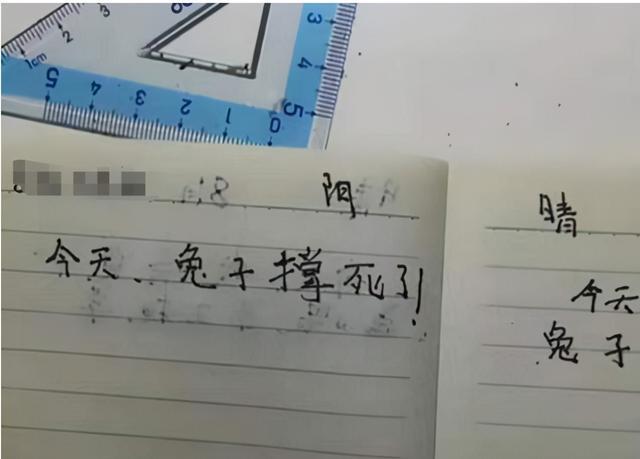 1cm 2 3
3
4
5
5 4 3 2 1 0
阳
今天、兔子撑死了!
晴
今天
兔子